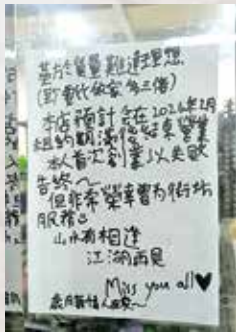 基於質量難達理想
(即實代做客多三倍)
本店預計會在2024年2月
租約期滿後結束營業
本人首次創業以失敗
告終~
但非常榮幸曾為街坊
服務
山水有相逢
江湖再見
Miss you all♥